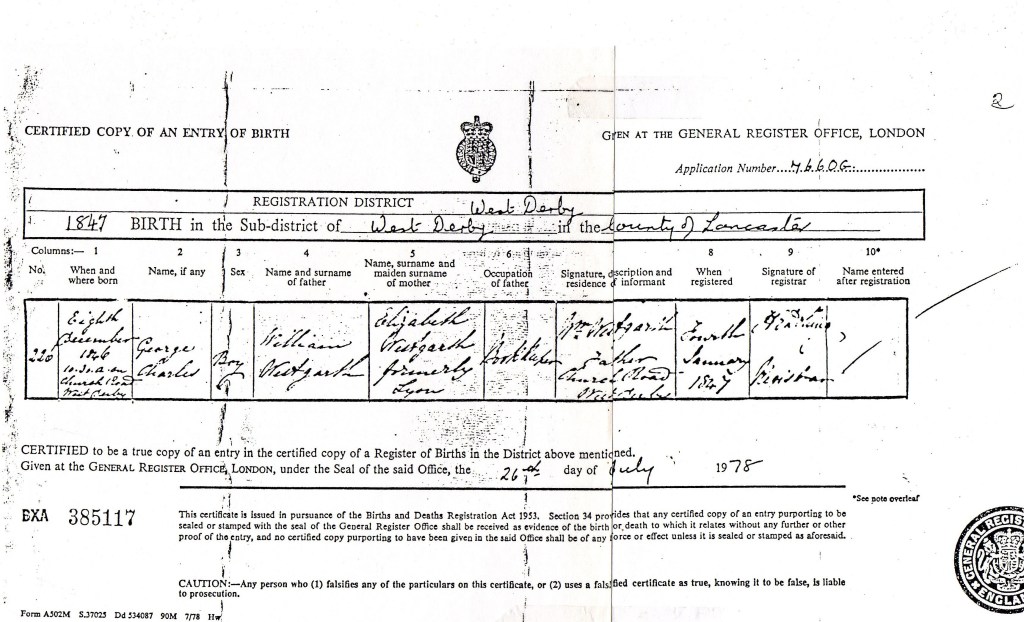 2
CERTIFIED COPY OF AN ENTRY OF BIRTH
GIVEN AT THE GENERAL REGISTER OFFICE, LONDON
Application Number....7660G.
REGISTRATION DISTRICT West Derby
1847 BIRTH in the Sub-district of West Derby in the County of Lancaster
Columns:— 1 2 3 4 5 6 8 9 10*
No. When and where born Name, if any Sex Name and surname of father Name, surname and maiden surname of mother Occupation of father Signature, description and residence of informant When registered Signature of registrar Name entered after registration
226
Eighth
December
1846
10.30 a.m.
Church Road
West Derby
George
Charles
Boy
William
Westgarth
Elizabeth
Westgarth
formerly
Lyon
Bookkeeper
Wm Westgarth
Father
Church Road
West Derby
Fourth
January
1847
Registrar
CERTIFIED to be a true copy of an entry in the certified copy of a Register of Births in the District above mentioned.
Given at the GENERAL REGISTER OFFICE, LONDON, under the Seal of the said Office, the 26th day of July 1978
*See note overleaf
BXA 385117
This certificate is issued in pursuance of the Births and Deaths Registration Act 1953. Section 34 provides that any certified copy of an entry purporting to be
sealed or stamped with the seal of the General Register Office shall be received as evidence of the birth or death to which it relates without any further or other
proof of the entry, and no certified copy purporting to have been given in the said Office shall be of any force or effect unless it is sealed or stamped as aforesaid.
CAUTION:—Any person who (1) falsifies any of the particulars on this certificate, or (2) uses a falsified certificate as true, knowing it to be false, is liable
to prosecution.
Form A502M S.37025 Dd 534087 90M 7/78 Hw
GENERAL REGIS
ENGLA